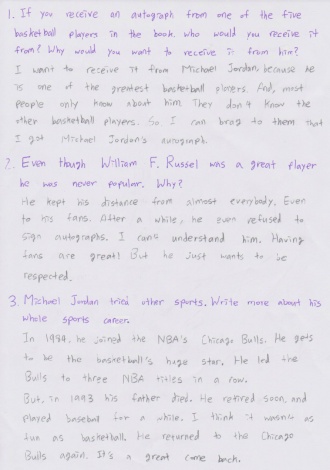 1. If you receive an autograph from one of the five
basketball players in the book. who would you receive it
from? Why would you want to receive it from him?
I want to receive it from Michael Jordan, because he
is one of the greatest basketball players. And, most
people only know about him They don't know the
other basketball players. So I can brag to them that
I got Michael Jordan's autograph.
2. Even though William F. Russel was a great player
he was never popular. Why?
He kept his distance from almost everybody. Even
to his fans. After a while, he even refused to
sign autographs. I can't understand him. Having
fans are great! But he just wants to be
respected.
3. Michael Jordan tried other sports. Write more about his
whole sports career.
In 1984, he joined the NBA's Chicago Bulls. He gets
to be the basketball's huge star. He led the
Bulls to three NBA titles in a row.
But, in 1993 his father died. He retired soon, and
played baseball for a while. I think it wasn't as
fun as basketball. He returned to the Chicago
Bulls again. It's a great come back.